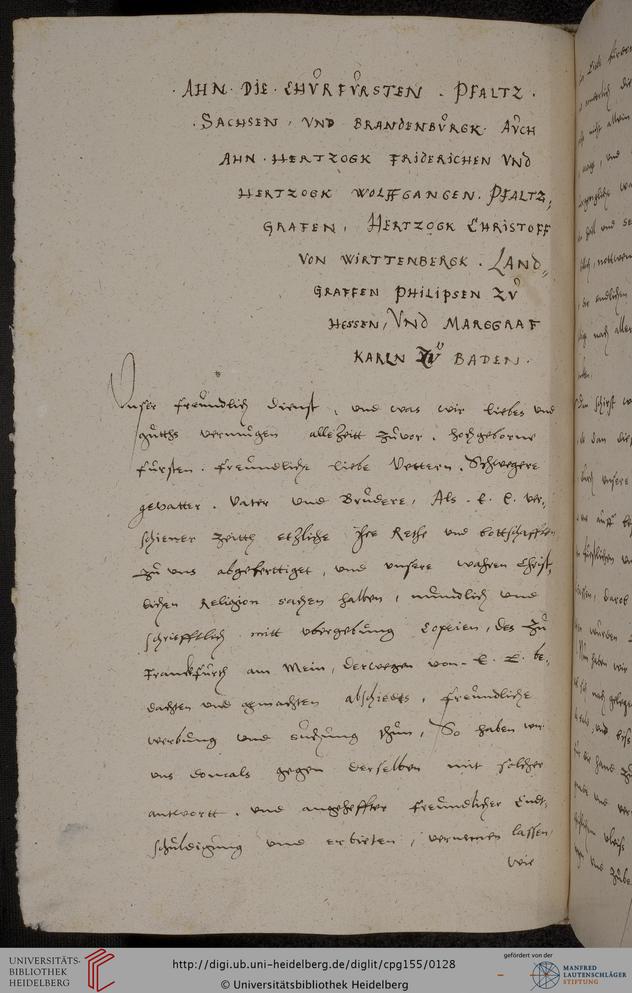 · AHN · DIE · CHŮRFŮRSTEN · PFALTZ ·
· SACHSEN, VND BRANDENBŮRGK· AŮCH
AHN · HERTZOGK FRIDERICHEN VND
HERTZOGK WOLFFGANGEN · PFALTZ,
GRAFEN, HERTZOGK CHRISTOFF
VON WIRTTENBERGK · LAND„
GRAFFEN PHILIPSEN ZŮ
HESSEN, VND MARGGRAF
KARLN ZŮ BADEN ·
Vnser freůndlich dienst, vnd was wir liebes vnd
gůtths vermůgen alle Zeitt zůvor. Hochgeborne
fůrsten. freůndliche liebe Vettern. Schwegere
gevatter. Vater vnd Brůdere, Als. E. E. ver,
schiener zeitth etzliche Ihre Rethe vnd bottschafften
zů vns abgeferttiget, vnd vnsere wahren Christ,
lichen Religion sachen halben, můndlich vnd
schriefftlich mitt vbergebůng Copeien, des zů
Franckfurth am Mein, derwegen von. E. E. be,
dachten vnd gemachten abschiedts, freůndliche
werbůng vnd thůn, So haben wir
vns domals gegen derselben mit solcher
antwortt. vnd angeheffter freůndlicher Endt,
schůldigůng vnd erbieten, vernemen lassen,
wie
UNIVERSITÄTS-
BIBLIOTHEK
HEIDELBERG
http://digi.ub.uni-heidelberg.de/diglit/cpg155/0128
© Universitätsbibliothek Heidelberg
gefördert von der
MANFRED
LAUTENSCHLÄGER
STIFTUNG